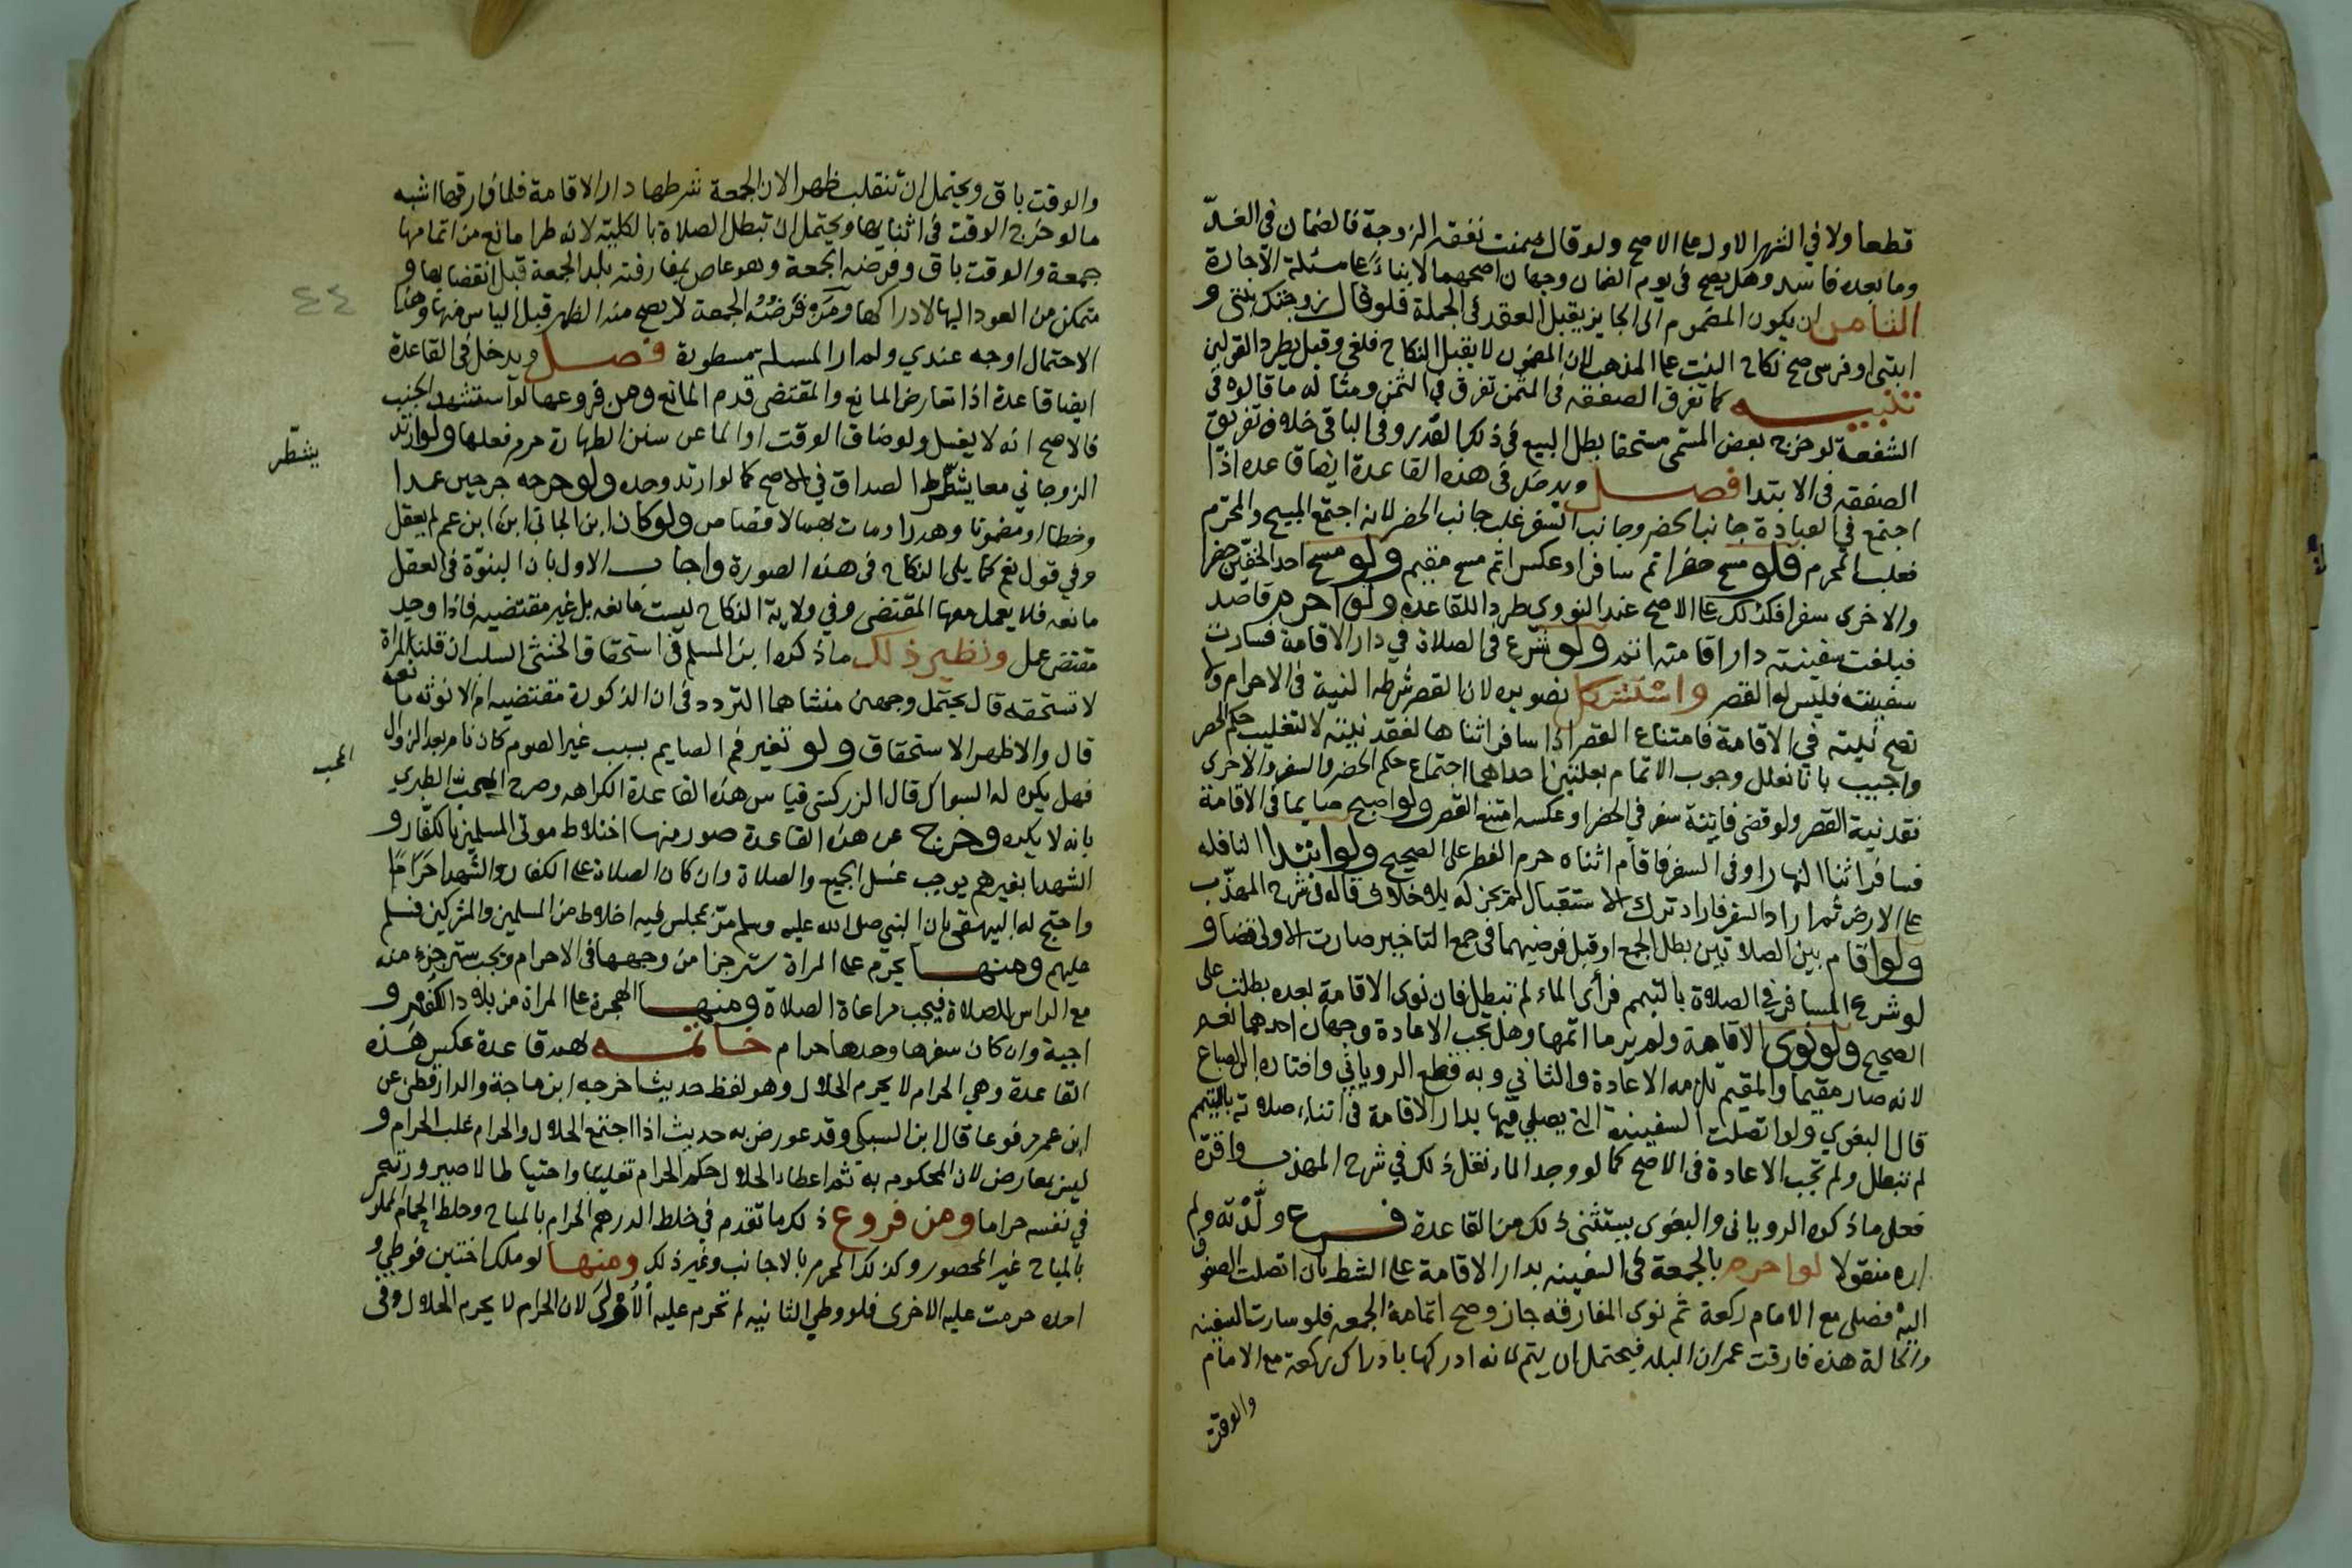 قطعا ولا في الشهر الاول على الاصح ولو قال ضمنت نفقة الزوجة فالضمان في الغد
وما بعده فاسد وهل يصح في يوم الضمان وجهان اصحهما لا بناء على مسئلة الاجارة
الثامن ان يكون المضموم الى الجايز يقبل العقد في الجملة فلو قال زوجتك بنتى و
ابنى او فرسى صح نكاح البنت على المذهب لان المضموم لا يقبل النكاح فلغى وقيل بطرد القولين
تنبيه كما تفرق الصفقه فى المثمن تفرق في الثمن ومثاله ما قالوه في
الشفعة لو خرج بعض المسمى مستحقا بطل البيع في ذلك القدر وفى الباقى خلاف تفريق
الصفقه فى الابتدا فصل ويدخل فى هذه القاعدة ايضا قاعده اذا
اجتمع في العبادة جانب الحضر وجانب السفر غلب جانب الحضر لانه اجتمع المبيح والمحرم
فغلب المحرم فلو مسح حضرا ثم سافر او عكس اتم مسح مقيم ولو مسح احد الخفين حضرا
والاخرى سفرا فكذلك على الاصح عند النووي طردا للقاعده ولو احرم قاصد
فبلغت سفينته دار اقامته اتم ولو شرع فى الصلاة في دار الاقامة فسارت
سفينته فليس له القصر واستشكل تصويره لان القصر شرطه النية فى الاحرام ولا
تصح نيته في الاقامة فامتناع القصر اذا سافر اثناها لفقد نيته لا لتغليب حكم الحضر
واجيب بانا نعلل وجوب الاتمام بعلتين احداهما اجتماع حكم الحضر والسفر والاخرى
فقد نية القصر ولو قضى فايتة سفر في الحضر او عكسه امتنع القصر ولو اصبح صايما فى الاقامة
فسافر اثنا النهار او فى السفر فاقام اثناه حرم الفطر على الصحيح ولو ابتدا النافله
على الارض ثم اراد السفر فاراد ترك الاستقبال لم يجز له بلا خلاف قاله فى شرح المهذب
ولو اقام بين الصلاتين بطل الجمع او قبل فرضيهما فى جمع التاخير صارت الاولى قضا و
لو شرع المسافر في الصلاة بالتيمم فرأى الماء لم تبطل فان نوى الاقامة بعده بطلت على
الصحيح ولو نوى الاقامة ولم ير ما اتمها وهل تجب الاعادة وجهان احدهما نعم
لانه صار مقيما والمقيم تلزمه الاعادة والثاني وبه قطع الروياني واختاره ابن الصباغ
قال البغوي ولو اتصلت السفينة التى يصلي فيها بدار الاقامة فى اثناء صلاته بالتيمم
لم تبطل ولم تجب الاعادة فى الاصح كما لو وجد الماء نقل ذلك في شرح المهذب واقره
فعلى ما ذكره الرويانى والبغوى يستثنى ذلك من القاعدة فرع ولدته ولم
اره منقولا لو احرم بالجمعة فى السفينه بدار الاقامة على الشط بان اتصلت الصفوف
اليه فصلى مع الامام ركعة ثم نوى المفارقه جاز وصح اتمامه الجمعه فلو سارت السفينه
والحالة هذه فارقت عمران البلد فيحتمل ان يتم لانه ادركها بادراك ركعة مع الامام
والوقت
والوقت باق ويحتمل ان تنقلب ظهرا لان الجمعة شرطها دار الاقامة فلما فارقها اشبه
ما لو خرج الوقت فى اثنايها ويحتمل ان تبطل الصلاة بالكلية لانه طرا مانع من اتمامها
جمعة والوقت باق وفرضه الجمعة وهو عاص بمفارقته بلد الجمعة قبل انقضايها و
متمكن من العود اليها لادراكها ومن فرضه الجمعة لا يصح منه الظهر قبل الياس منها وهذا
الاحتمال اوجه عندي ولم ار المسله مسطورة فصل ويدخل فى القاعدة
ايضا قاعدة اذا تعارض المانع والمقتضى قدم المانع ومن فروعها لو استشهد الجنب
فالاصح انه لا يغسل ولو ضاق الوقت او الما عن سنن الطهارة حرم فعلها ولو ارتد
الزوجان معا يشطر الصداق في الاصح كما لو ارتد وحده ولو جرحه جرحين عمدا
يتشطر
وخطا او مضمونا وهدرا ومات بهما لا قصاص ولو كان ابن الجانى ابن ابن عم لم يعقل
وفي قول نعم كما يلى النكاح فى هذه الصورة واجاب الاول بان البنوة فى العقل
مانعه فلا يعمل معها المقتضى وفي ولاية النكاح ليست مانعه بل غير مقتضيه فاذا وجد
مقتض عمل ونظير ذلك ما ذكره ابن المسلم فى استحقاق الخنثى السلب ان قلنا المراة
لا تستحقه قال يحتمل وجهين منشاهما التردد فى ان الذكورة مقتضيه ام الانوثه مانعه
قال والاظهر الاستحقاق ولو تغير فم الصايم بسبب غير الصوم كان نام بعد الزوال
فهل يكره له السواك قال الزركشى قياس هذه القاعدة الكراهه وصرح المحب الطبري
المحب
بانه لا يكره وخرج عن هذه القاعدة صور منها اختلاط موتى المسلمين بالكفار و
الشهدا بغيرهم يوجب غسل الجميع والصلاة وان كان الصلاة على الكفار والشهدا حراما
واحتج له البيهقى بان النبي صلى الله عليه وسلم مر بمجلس فيه اخلاط من المسلمين والمشركين فسلم
عليهم ومنها يحرم على المراة ستر جزا من وجهها فى الاحرام ويجب ستر جزء منه
مع الراس للصلاة فيجب مراعاة الصلاة ومنها الهجرة على المراة من بلاد الكفر و
اجبة وان كان سفرها وحدها حرام خاتمه لهم قاعدة عكس هذه
القاعدة وهي الحرام لا يحرم الحلال وهو لفظ حديث اخرجه ابن ماجة والدارقطنى عن
ابن عمر مرفوعا قال ابن السبكى وقد عورض به حديث اذا اجتمع الحلال والحرام غلب الحرام و
ليس بمعارض لان المحكوم به ثم اعطاء الحلال حكم الحرام تغليبا واحتياطا لا صيرورته
في نفسه حراما ومن فروع ذلك ما تقدم في خلط الدرهم الحرام بالمباح وخلط الحمام المملوك
بالمباح غير المحصور وكذلك المحرم بالاجانب وغير ذلك ومنها لو ملك اختين فوطي و
احده حرمت عليه الاخرى فلو وطي الثانيه لم تحرم عليه الأولى لان الحرام لا يحرم الحلال وفى
٤٤